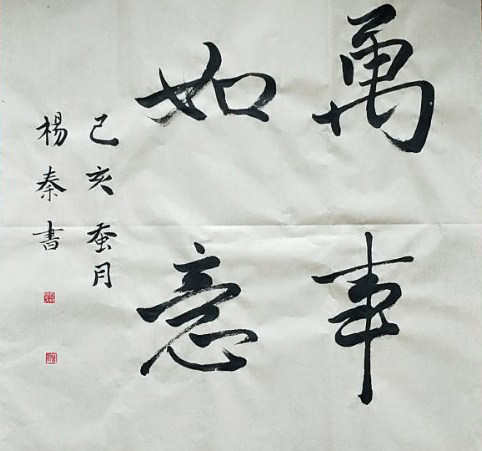 萬事
如意
己亥蚕月
楊秦書